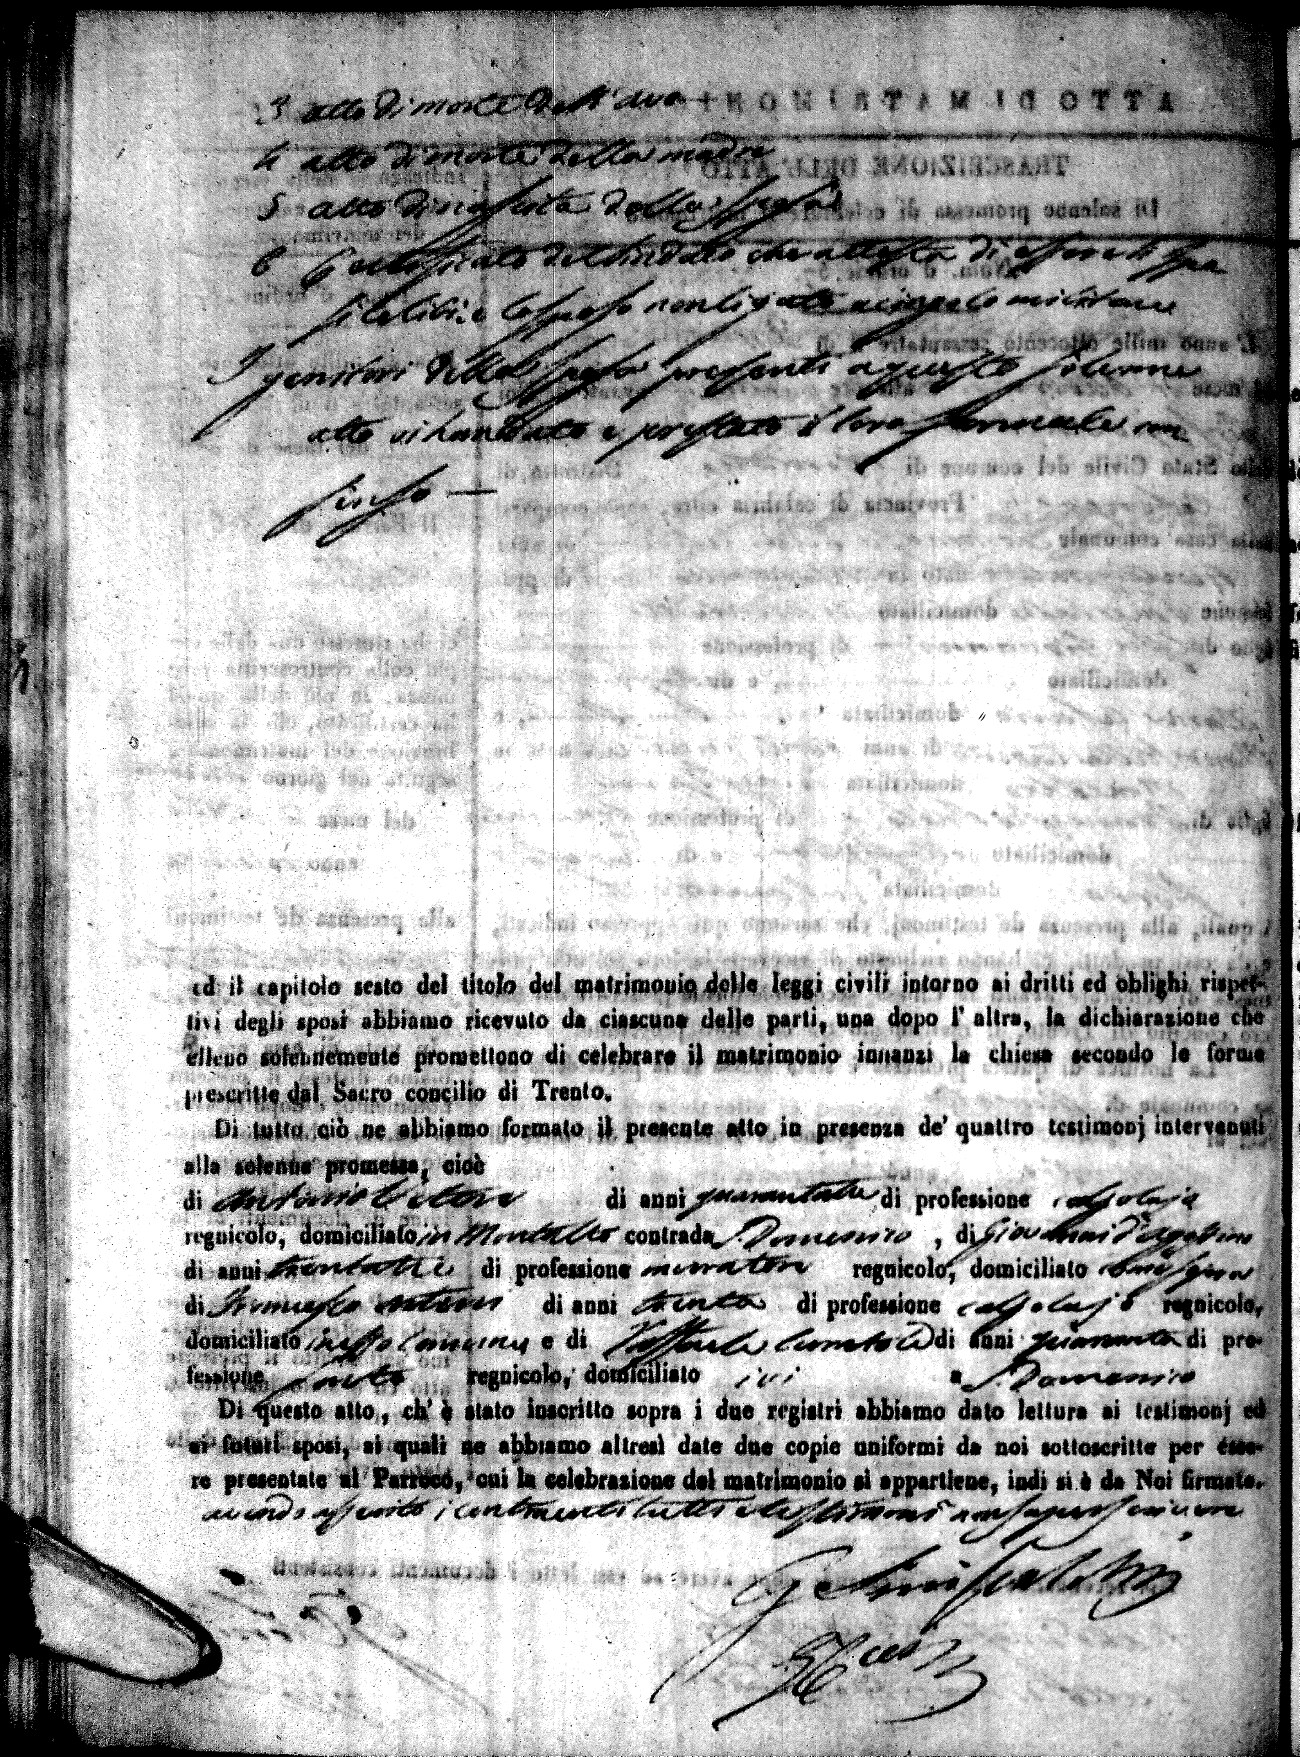 3 atto di morte dell'avo
4 atto di morte della madre
5 atto di nascita della sposa
6 Certificato del Sindaco che attesta di essere li spo
si celibi: e lo sposo non ligato a cingolo militare
I genitori della sposa presenti a questo solenne
atto vi han dato e prestato il loro formale con
senso —
ed il capitolo sesto del titolo del matrimonio delle leggi civili intorno ai dritti ed oblighi rispet-
tivi degli sposi abbiamo ricevuto da ciascuna delle parti, una dopo l' altra, la dichiarazione che
elleno solennemente promettono di celebrare il matrimonio innanzi la chiesa secondo le forme
prescritte dal Sacro concilio di Trento.
Di tutto ciò ne abbiamo formato il presente atto in presenza de' quattro testimonj intervenuti
alla solenne promessa, cioè
di Antonio di anni quarantatre di professione calzolajo
regnicolo, domiciliato in Montalto contrada S. Domenico, di Giovanni d'Agostino
di anni trentatre di professione muratore regnicolo, domiciliato
di Francesco di anni trenta di professione calzolajo regnicolo,
domiciliato in esso comune e di Raffaele di anni quaranta di pro-
fessione sarto regnicolo, domiciliato ivi a S. Domenico
Di questo atto, ch' è stato inscritto sopra i due registri abbiamo dato lettura ai testimonj ed
ai futuri sposi, ai quali ne abbiamo altresì date due copie uniformi da noi sottoscritte per esse-
re presentate al Parroco, cui la celebrazione del matrimonio si appartiene, indi si è da Noi firmato.
avendo asserito i contraenti tutti e testimoni non saper scrivere